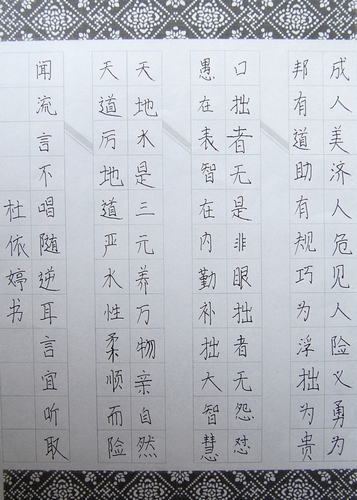 成人美济人危见人险义勇为
邦有道助有规巧为浮拙为贵
口拙者无是非眼拙者无怨怼
愚在表智在内勤补拙大智慧
天地水是三元养万物亲自然
天道厉地道严水性柔顺而险
闻流言不唱随逆耳言宜听取
杜依婷书